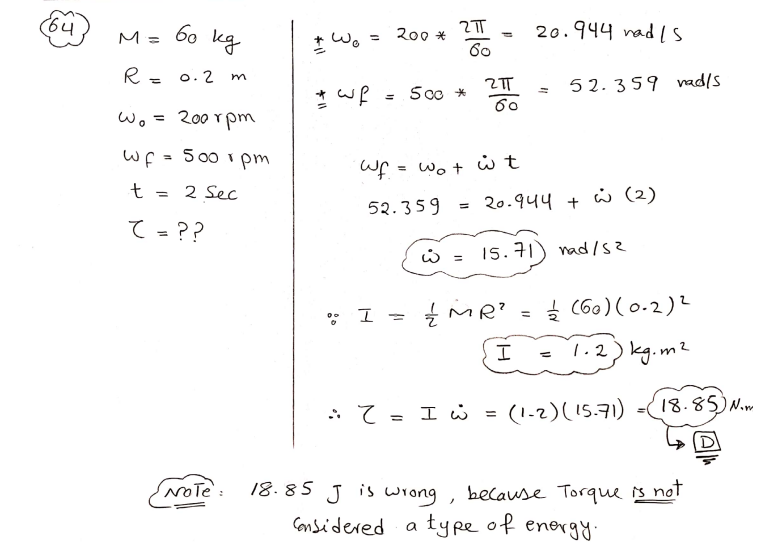 64
M = 60 kg
R = 0.2 m
ω₀ = 200 rpm
ωf = 500 rpm
t = 2 Sec
τ = ??
* ω₀ = 200 * 2π/60 = 20.944 rad/s
* ωf = 500 * 2π/60 = 52.359 rad/s
ωf = ω₀ + ω̇ t
52.359 = 20.944 + ω̇ (2)
ω̇ = 15.71 rad/s²
∵ I = ½ MR² = ½ (60)(0.2)²
I = 1.2 kg.m²
∴ τ = I ω̇ = (1.2)(15.71) = 18.85 N.m
↳ D
NOTE: 18.85 J is wrong, because Torque is not
Considered a type of energy.